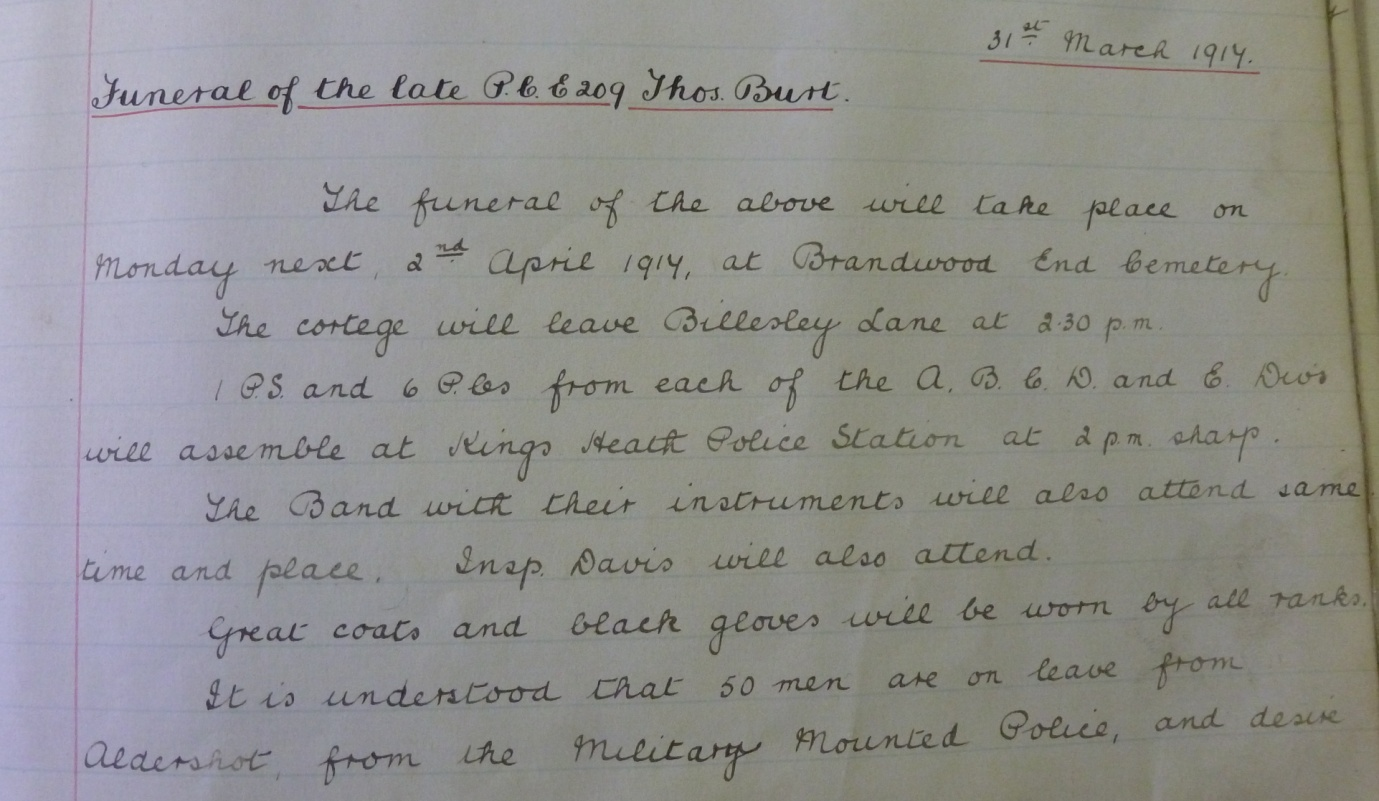 31st March 1917.
Funeral of the late P.C. E209 Thos. Burt.
The funeral of the above will take place on
Monday next, 2nd April 1917, at Brandwood End Cemetery.
The cortege will leave Billesley Lane at 2.30 p.m.
1 P.S. and 6 P.Cs from each of the A. B. C. D. and E. Divs
will assemble at Kings Heath Police Station at 2 p.m. sharp.
The Band with their instruments will also attend same
time and place. Insp. Davis will also attend.
Great coats and black gloves will be worn by all ranks.
It is understood that 50 men are on leave from
Aldershot, from the Military Mounted Police, and desire